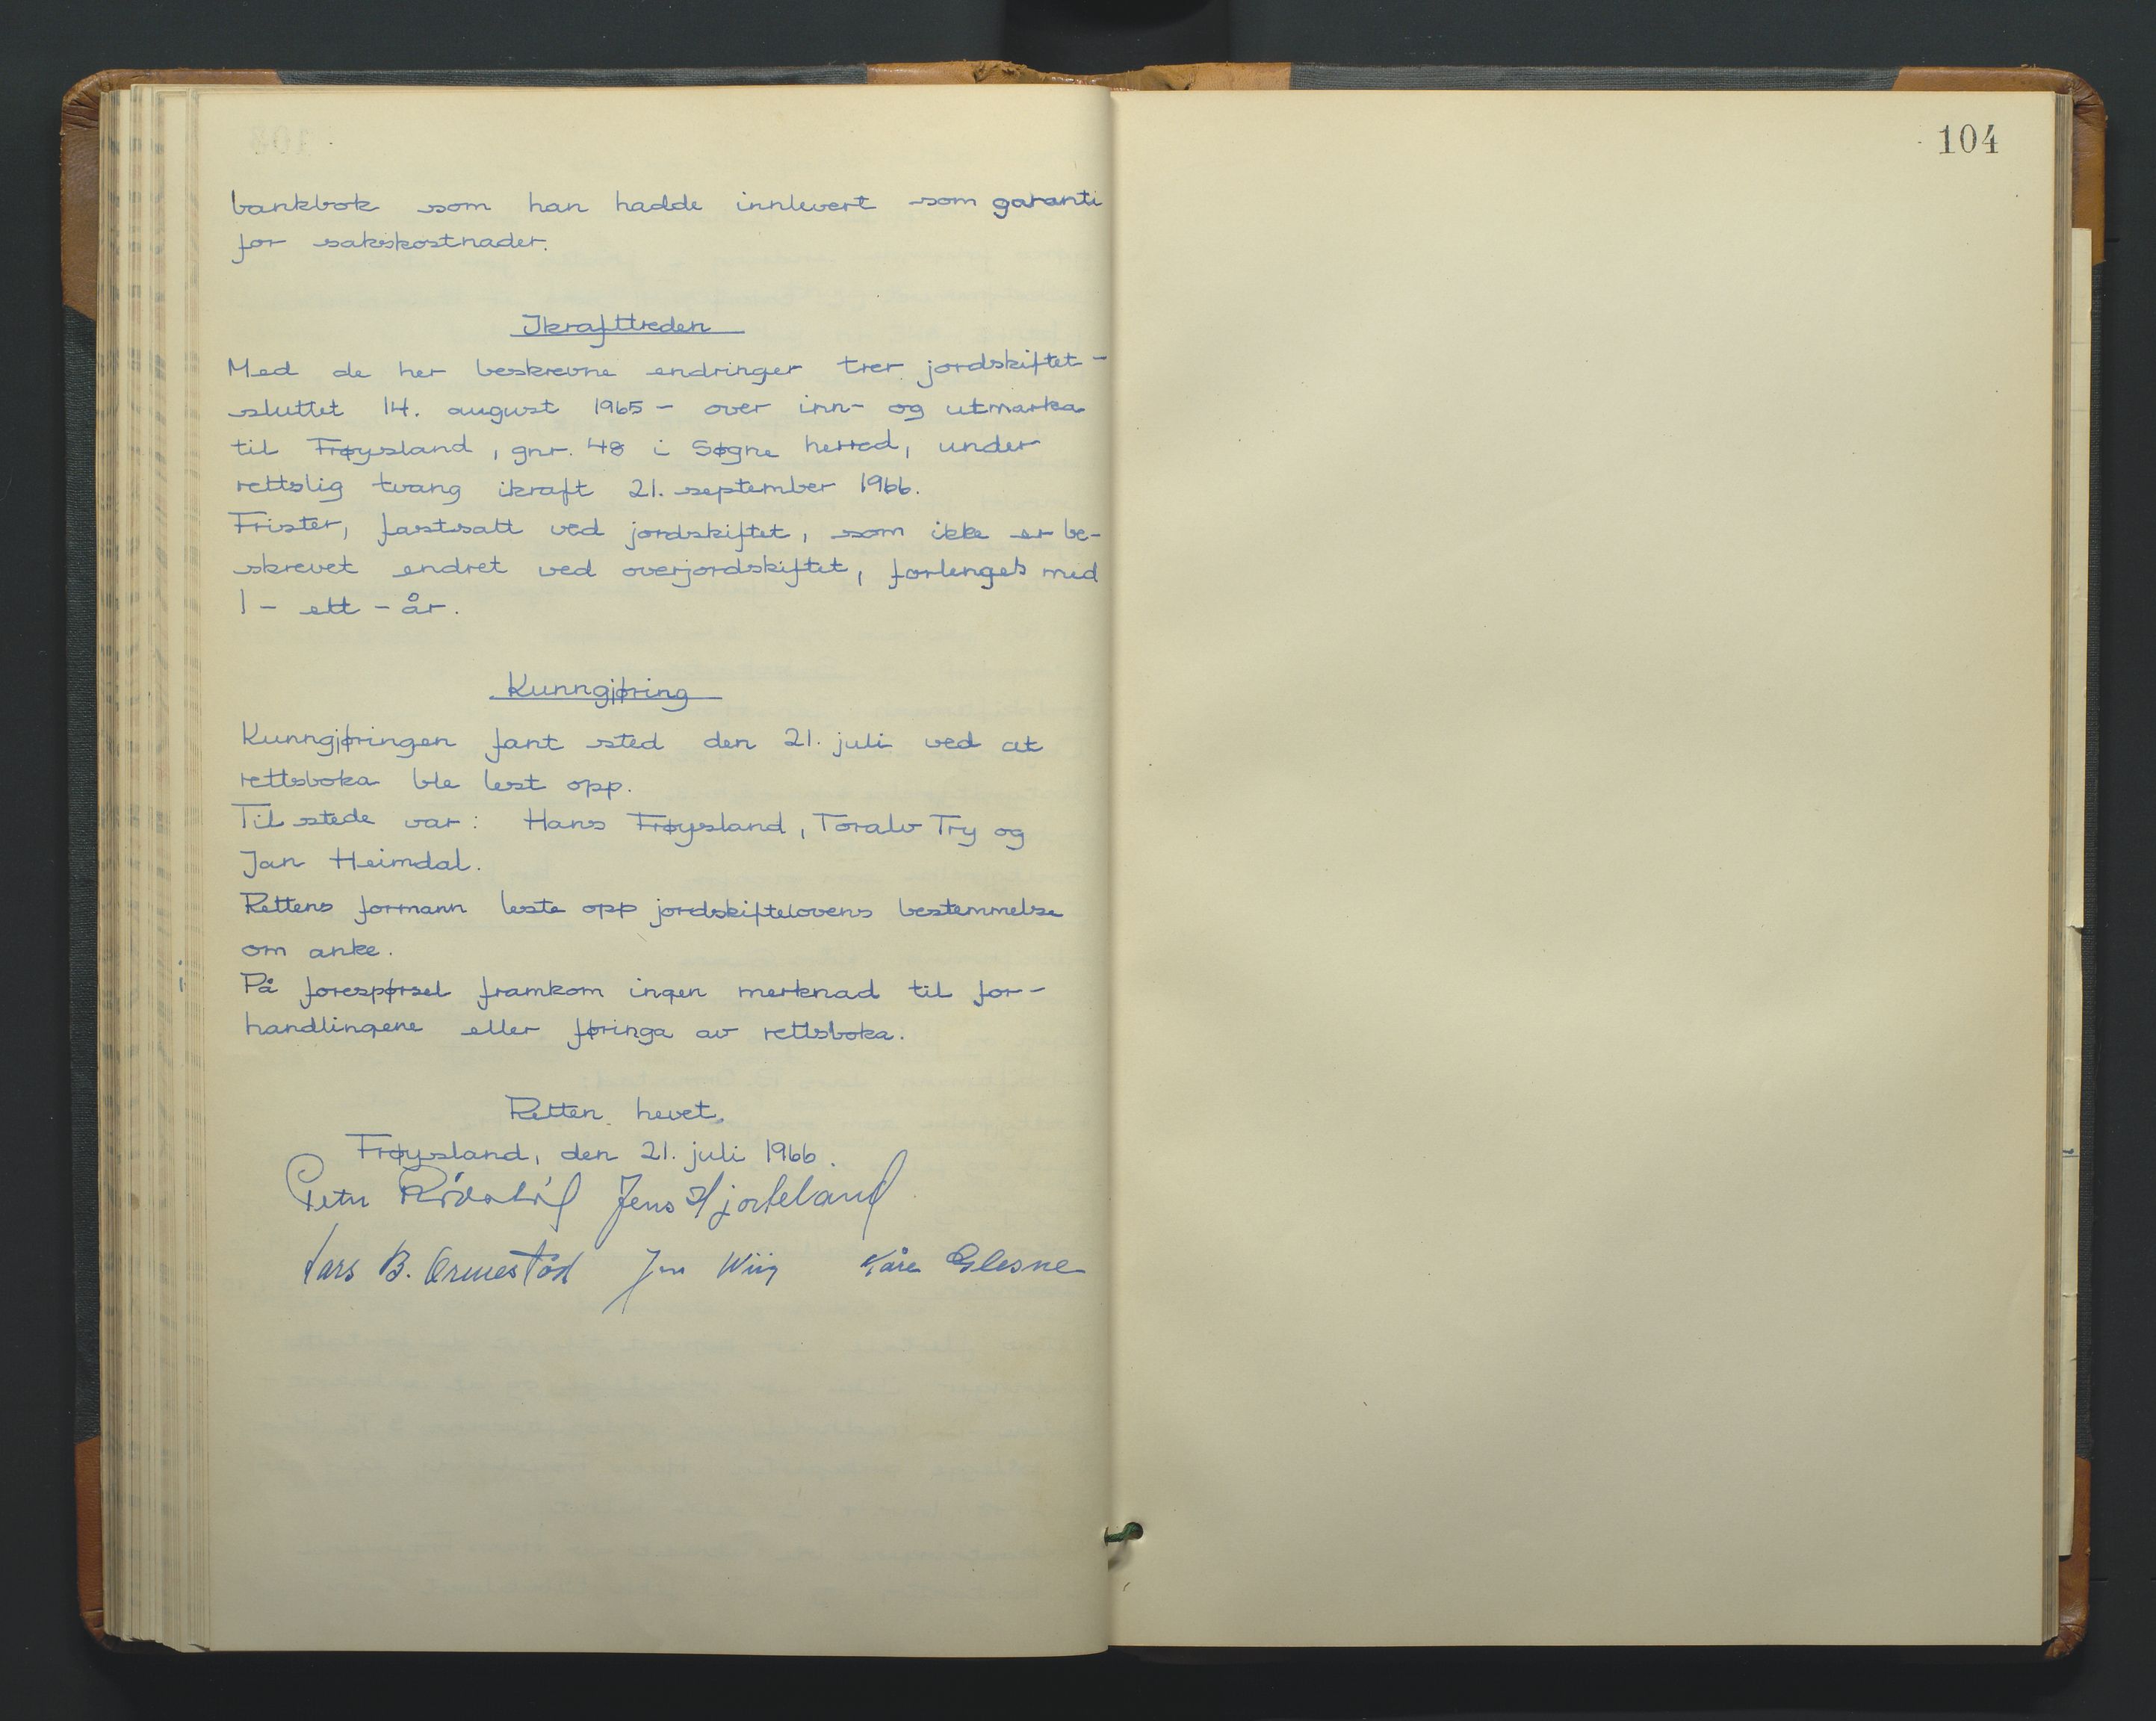 bankbok som han hadde innlevert som garanti
for sakskostnader.
Ikrafttreden
Med de her beskrevne endringer trer jordskiftet -
sluttet 14. august 1965 - over inn- og utmarka
til Frøysland, gnr. 48 i Søgne herred, under
rettslig tvang ikraft 21. september 1966.
Frister, fastsatt ved jordskiftet, som ikke er be-
skrevet endret ved overjordskiftet, forlenges med
1 - ett - år.
Kunngjøring
Kunngjøringen fant sted den 21. juli ved at
rettsboka ble lest opp.
Til stede var: Hans Frøysland, Toralv Try og
Jan Heimdal.
Rettens formann leste opp jordskiftelovens bestemmelse
om anke.
På forespørsel framkom ingen merknad til for-
handlingene eller føringa av rettsboka.
Retten hevet.
Frøysland, den 21. juli 1966.
Peter Jens Hjorteland
Lars B. Ormestad Jon Wiig Kåre Glesne
104